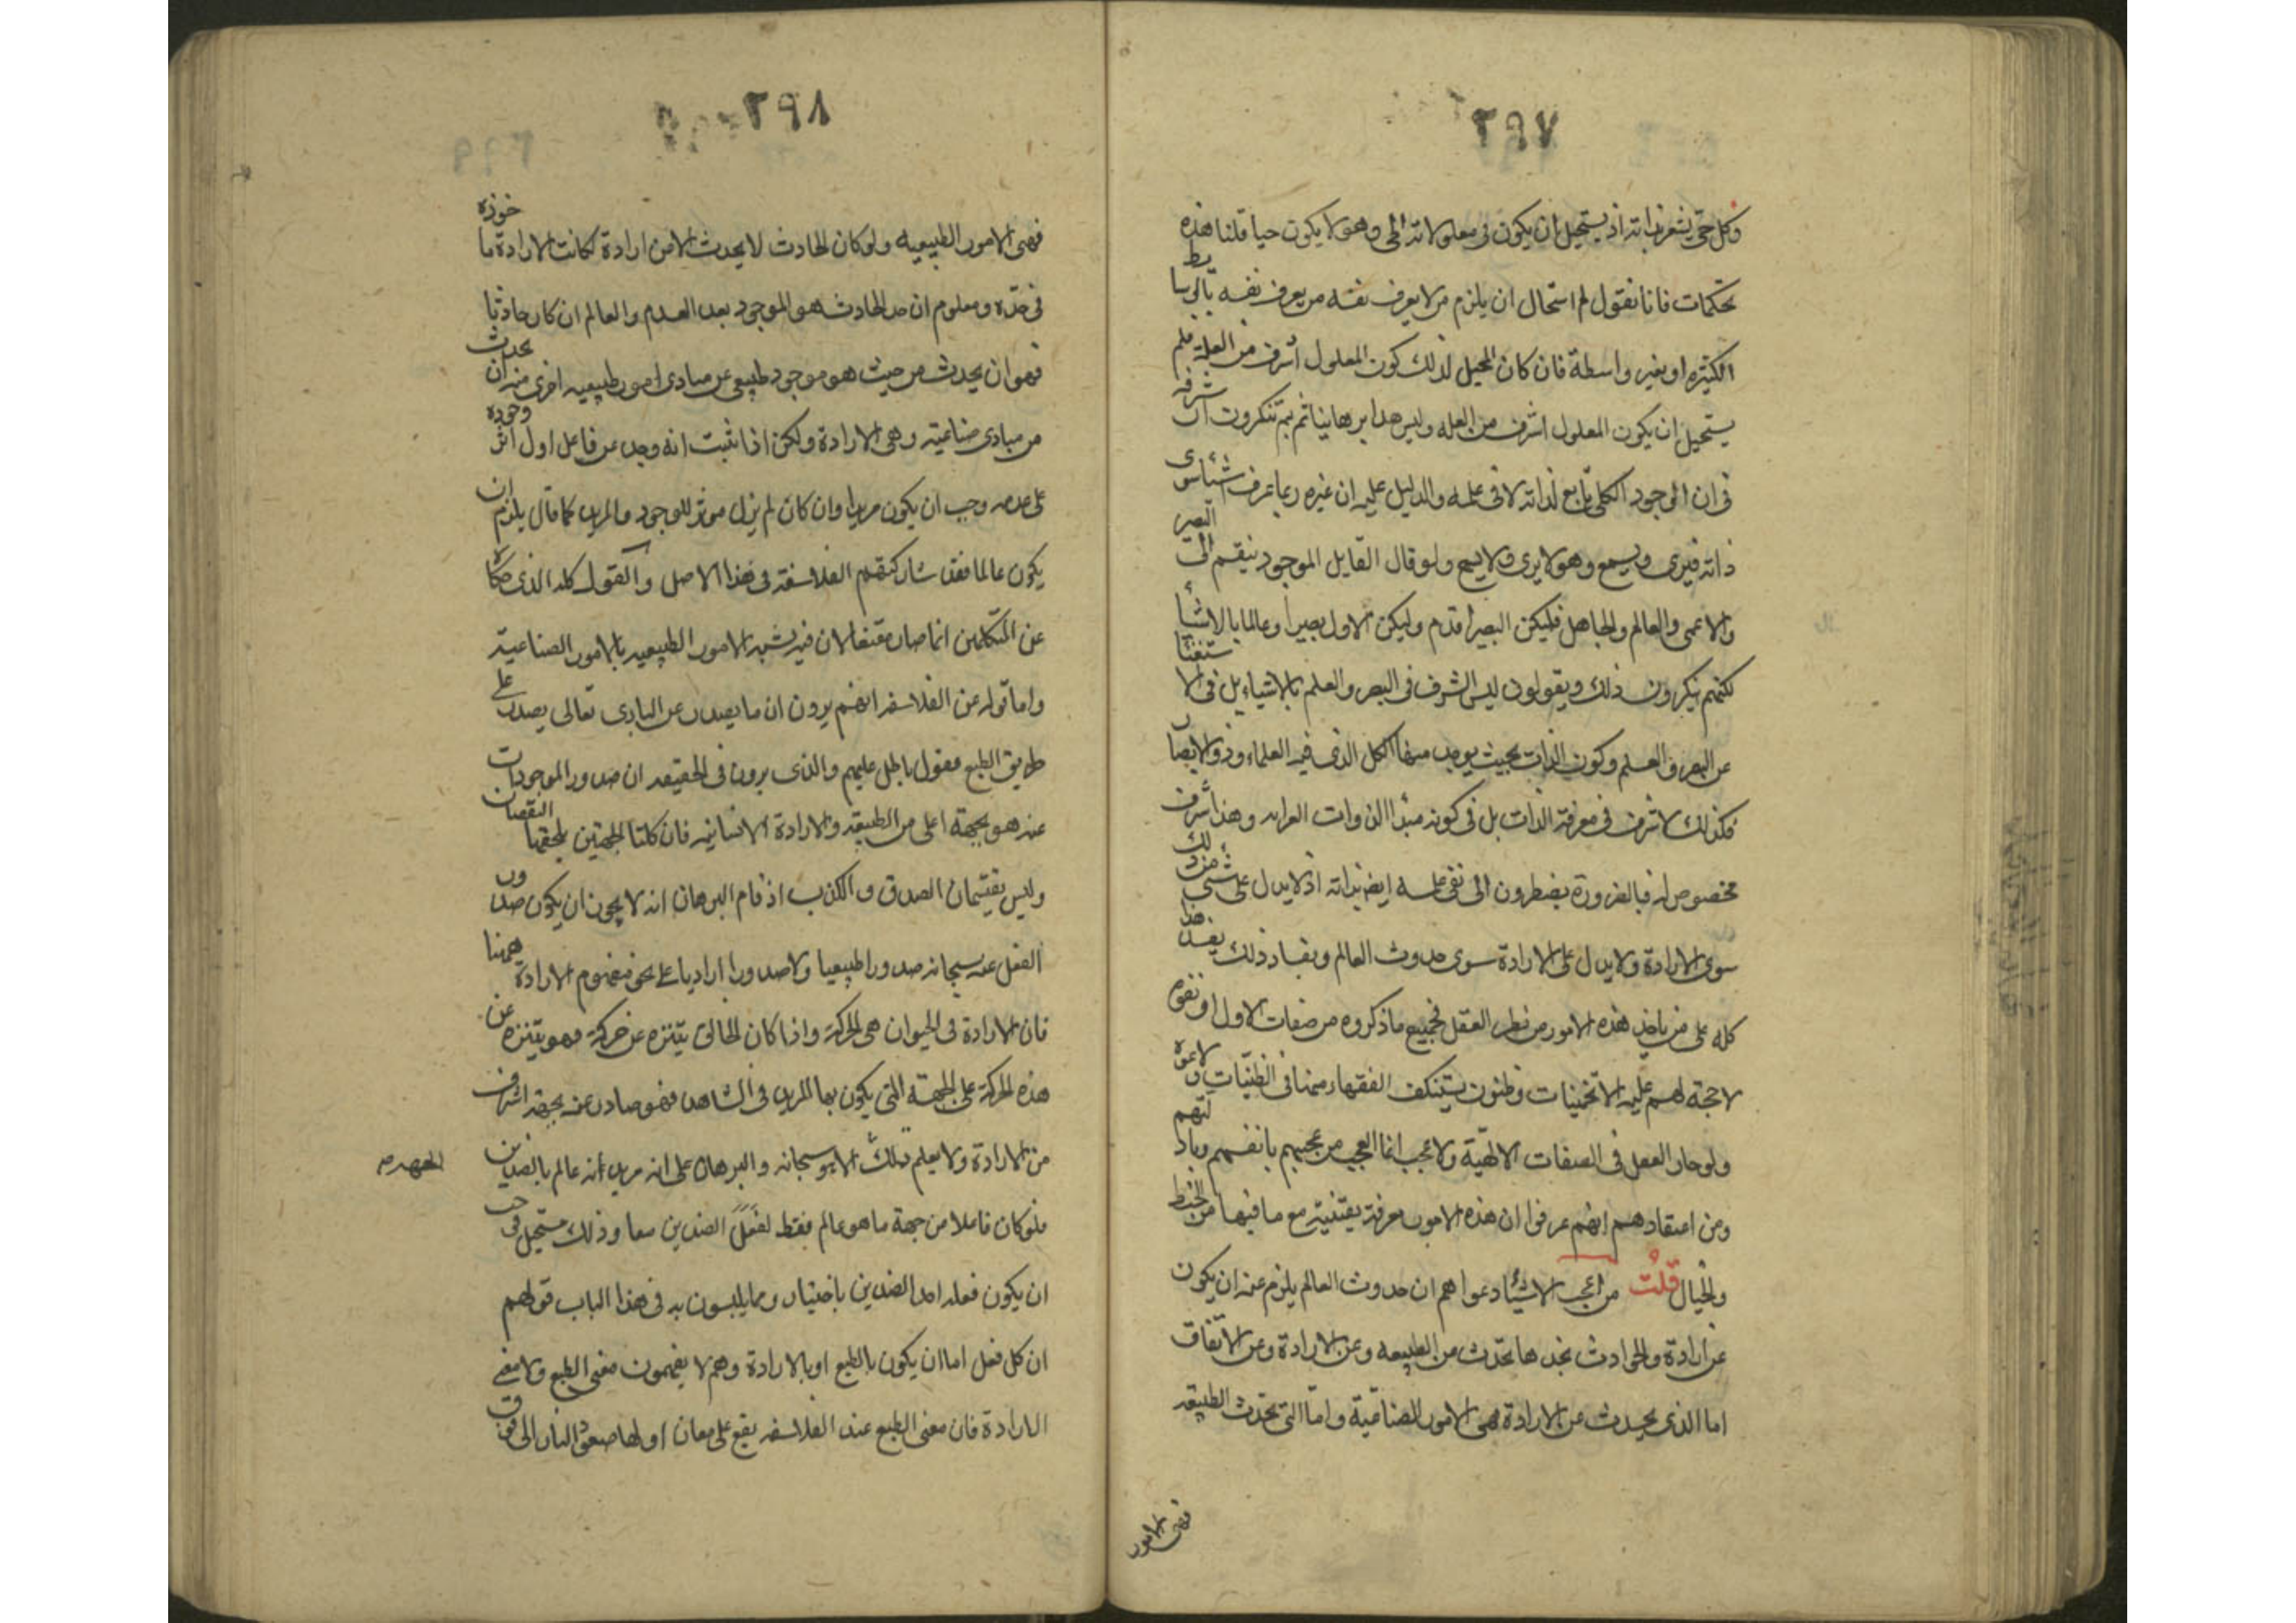 ٢٩٧
وكل حي يشعر بذاته اذ يستحيل ان يكون في معلولاته الحي وهو لا يكون حيا قلنا هذه
تحكمات فانا نقول لم استحال ان يلزم من لا يعرف نفسه من يعرف نفسه بالوسايط
الكثيره او بغير واسطة فان كان المحيل لذلك كون المعلول اشرف من العلة فلم
يستحيل ان يكون المعلول اشرف من العله وليس هذا بديهيا ثم بم تنكرون ان شرفه
في ان الوجود الكلي تابع لذاته لا في علمه والدليل عليه ان غيره ربما عرف اشياء سوى
ذاته فيرى ويسمع وهو لا يرى ولا يسمع ولو قال القايل الموجود ينقسم الى البصير
والاعمى والعالم والجاهل فليكن البصير اقدم وليكن الاول بصيرا وعالما بالاشيأ
لكنهم ينكرون ذلك ويقولون ليس الشرف في البصر والعلم بالاشياء بل في الاستغنآ
عن البصر والعلم وكون الذات بحيث يوجد منها الكل الذى فيه العلماء وذوو الابصار
فكذلك لا شرف في معرفة الذات بل في كونه مبدأ الذوات العرافه وهذا شرف
مخصوص له فبالضرورة يضطرون الى نفى علمه ايضا بذاته اذ لا يدل على شئ من ذلك
سوى الارادة ولا يدل على الارادة سوى حدوث العالم وبفساد ذلك يفسد هذا
كله على من ياخذ هذه الامور من نظر العقل فجميع ما ذكروه من صفات الاول او نفوه
لا حجة لهم عليه الا تخمينات وظنون يستنكف الفقهاء منها في الظنيات ولا غرو
ولو حار العقل في الصفات الالهية ولا عجب انما العجب من عجبهم بانفسهم وبادلتهم
ومن اعتقادهم انهم عرفوا ان هذه الامور معرفة يقينية مع ما فيها من الخبط
والخيال قلت من اعجب الاشيأ دعواهم ان حدوث العالم يلزم عنه ان يكون
عن ارادة والحوادث نجدها تحدث من الطبيعه وعن الارادة وعن الاتفاق
اما الذى يحدث عن الارادة فهى الامور الصناعية واما التى تحدث الطبيعه
فهى الامور
٢٩٨
فهى الامور الطبيعيه ولو كان الحادث لا يحدث الا من ارادة لكانت الارادة ماخوذه
في حدّه ومعلوم ان حد الحادث هو الموجود بعد العدم والعالم ان كان حادثا
فهو ان يحدث من حيث هو موجود طبيعى عن مبادى امور طبيعيه احرى منه ان يحدث
من مبادى صناعية وهى الارادة ولكن اذا ثبت انه وجد عن فاعل اول اثر وجوده
على عدمه وجب ان يكون مريدا وان كان لم يزل موثر للوجود والمريد كما قال يلزم ان
يكون عالما فقد شاركتهم الفلاسفة في هذا الاصل والقول كله الذى حكاه
عن المتكلمين انما صار مقنعا لان فيه تشبيه الامور الطبيعيه بالامور الصناعية
واما قوله عن الفلاسفه انهم يرون ان ما يصدر عن البارى تعالى يصدر على
طريق الطبع فقول باطل عليهم والذى يرون في الحقيقه ان صدور الموجودات
عنه هو بجهة اعلى من الطبيعه والارادة الانسانيه فان كلتا الجهتين يلحقهما النقصان
وليس يقتسمان الصدق والكذب اذ قام البرهان انه لا يجوز ان يكون صدور
الفعل عنه سبحانه صدورا طبيعيا ولا صدورا اراديا على نحو مفهوم الارادة ههنا
فان الارادة في الحيوان هى الحركة واذا كان الخالق يتنزه عن حركة فهو يتنزه عن
هذه الحركة على الجهة التى يكون بها المريد في الشاهد فهو صادر عنه بجهة اشرف
من الارادة ولا يعلم تلك الا هو سبحانه والبرهان على انه مريد انه عالم بالضدين
فلو كان فاعلا من جهة ما هو عالم فقط لفعل الضدين معا وذلك مستحيل فوجب
ان يكون فعله احد الضدين باختيار ومما يلبسون به في هذا الباب قولهم
ان كل فعل اما ان يكون بالطبع او بالارادة وهم لا يفهمون معنى الطبع ولا معنى
الارادة فان معنى الطبع عند الفلاسفه يقع على معان اولها صعود النار الى فوق